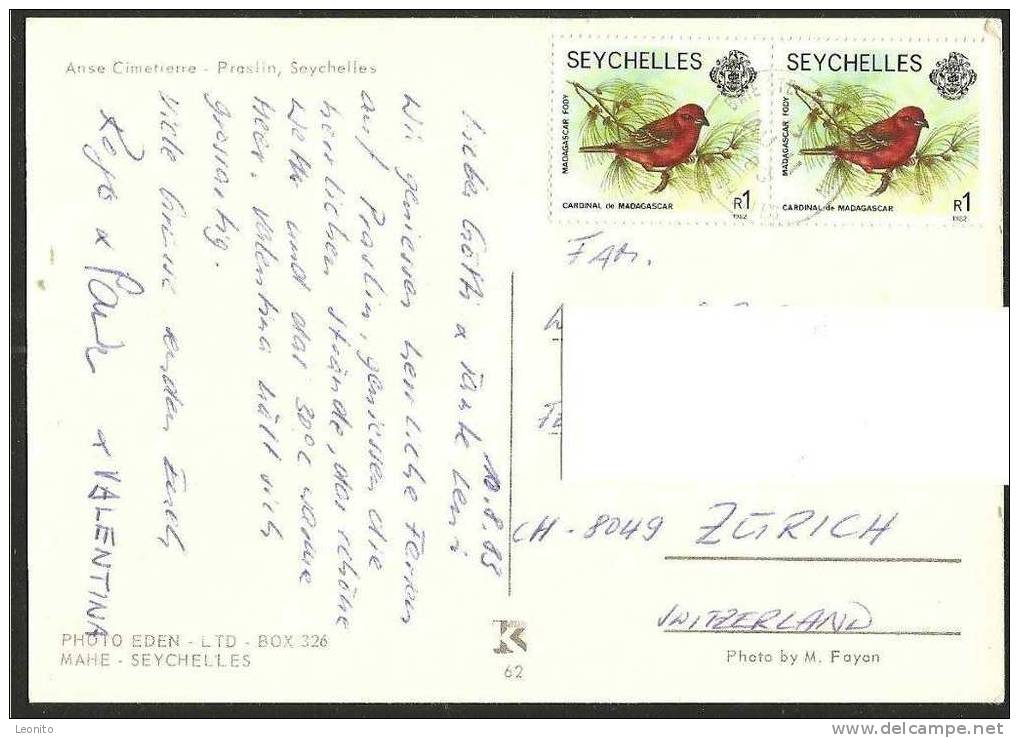 Anse Cimetierre - Praslin, Seychelles
10.8.83
Lieber Götti & Tante Leni
Wir geniessen herrliche Ferien
auf Praslin, geniessen die
herrlichen Strände, das schöne
Wetter und das 30°C warme
Meer. Valentina hält sich
grossartig.
Viele Grüsse senden Euch
& VALENTINA
PHOTO EDEN - LTD - BOX 326
MAHE - SEYCHELLES
62
SEYCHELLES
MADAGASCAR FODY
CARDINAL de MADAGASCAR
R1
1982
SEYCHELLES
MADAGASCAR FODY
CARDINAL de MADAGASCAR
R1
1982
FAM.
CH-8049 ZÜRICH
SWITZERLAND
Photo by M. Fayon
Leonito
www.delcampe.net